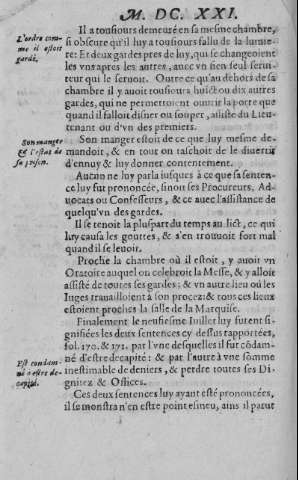 M. DC. XXI.
Il a tousiours demeuré en sa mesme chambre,
L'ordre comme
me il estoit
gardé.
si obscure qu'il luy a tousiours fallu de la lumie-
re: Et deux gardes pres de luy, qui se changeoient
les vns apres les autres, auec vn sien seul serui-
teur qui le seruoit. Outre ce qu'au dehors de sa
chambre il y auoit tousiours huict ou dix autres
gardes, qui ne permettoient ouurir la porte que
quand il falloit disner ou souper, assisté du Lieu-
tenant ou d'vn des premiers.
Son manger
& l'estat de
sa prison.
Son manger estoit de ce que luy mesme de-
mandoit, & en tout on taschoit de le diuertir
d'ennuy & luy donner contentement.
Aucun ne luy parla iusques à ce que sa senten-
ce luy fut prononcée, sinon ses Procureurs, Ad-
uocats ou Confesseurs, & ce auec l'assistance de
quelqu'vn des gardes.
Il se tenoit la pluspart du temps au lict, ce qui
luy causa les gouttes, & s'en trouuoit fort mal
quand il se leuoit.
Proche la chambre où il estoit, y auoit vn
Oratoire auquel on celebroit la Messe, & y alloit
assisté de toutes ses gardes: & vn autre lieu où les
Iuges trauailloient à son procez: & tous ces lieux
estoient proches la salle de la Marquise.
Finalement le neufiesme Iuillet luy furent si-
gnifiées les deux sentences cy dessus rapportées,
fol. 170. & 171. par l'vne desquelles il fut cõdam-
Est condam-
né à estre de-
capité.
né d'estre decapité: & par l'autre à vne sõmme
inestimable de deniers, & perdre toutes ses Di-
gnitez & Offices.
Ces deux sentences luy ayant esté prononcées,
il se monstra n'en estre point esmeu, ains il parut